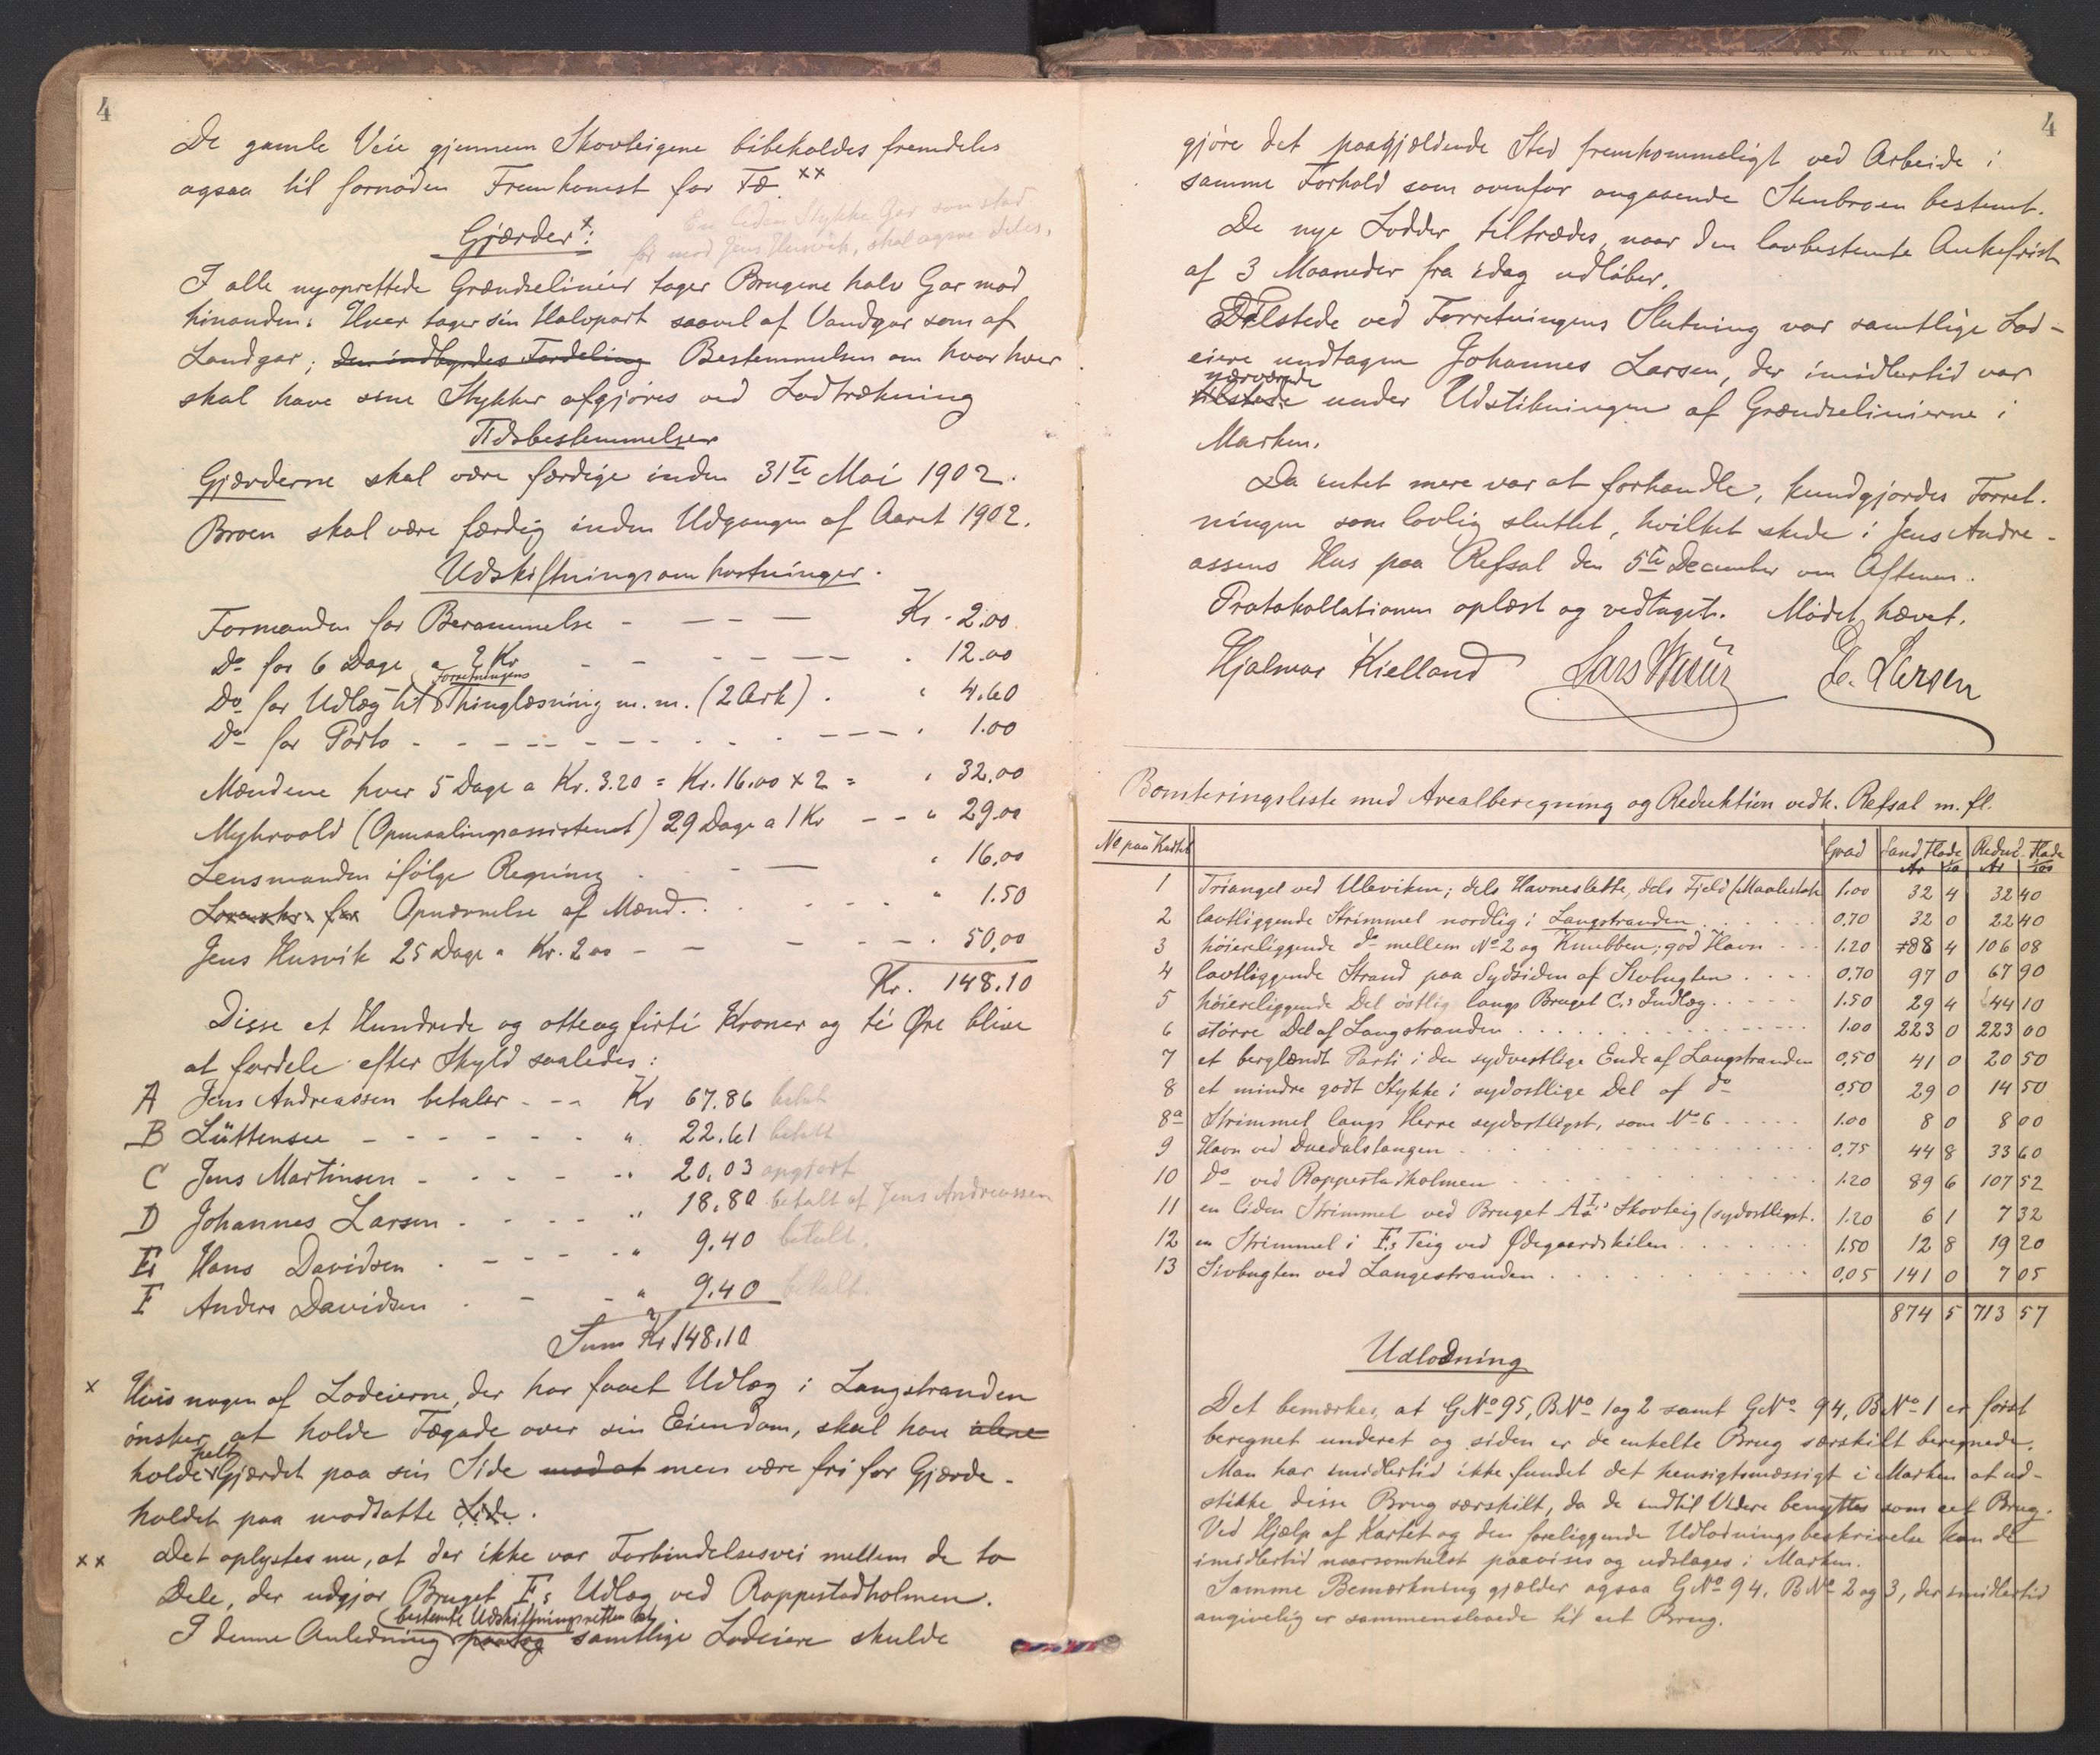 4
De gamle Veie gjennem Skovteigene bibeholdes fremdeles
ogsaa til fornøden Fremkomst for Fæ. xx
Gjærder x:
En liden Stykke Gar som stod
før mod Jens Husvik, skal ogsaa deles.
I alle nyoprettede Grændselinier tager Brugene halv Gar mod
hinanden. Hver tager sin Halvpart saavel af Vandgar som af
Landgar; den indbyrdes Fordeling Bestemmelsen om hvor hver
skal have sine Stykker afgjøres ved Lodtrækning
Tidsbestemmelser
Gjærderne skal være færdige inden 31te Mai 1902.
Broen skal være færdig inden Udgangen af Aaret 1902.
Udskiftningsomkostninger.
Formanden for Berammelse - - - - Kr. 2.00
Do for 6 Dage a 2 Kr - - - - - - " 12.00
Forretningens
Do for Udlæg til Thinglæsning m. m. (2 Ark) . " 4.60
Do for Porto - - - - - - - - - " 1.00
Mændene hver 5 Dage a Kr. 3.20 = Kr. 16.00 x 2 = " 32.00
Myhrvold (Opmaalingsassistent) 29 Dage a 1 Kr - - " 29.00
Lensmanden ifølge Regning - - - " 16.00
for Opnævnelse af Mænd. . . . . " 1.50
Jens Husvik 25 Dage a Kr. 2.00 - - - - " 50.00
Kr. 148.10
Disse et Hundrede og otteogfirti Kroner og ti Øre blive
at fordele efter Skyld saaledes:
A Jens Andreassen betaler - - - Kr 67.86 betalt
B Lüttensee - - - - - - " 22.61 betalt
C Jens Martinsen - - - - - " 20.03 opgjort
D Johannes Larsen - - - - " 18.80 betalt af Jens Andreassen
E Hans Davidsen - - - - - " 9.40 betalt.
F Anders Davidsen - - - " 9.40 betalt.
Sum Kr 148.10
x Hvis nogen af Lodeierne, der har faaet Udlæg i Langstranden
ønsker at holde Fægade over sin Eiendom, skal han alene
helt
holde Gjærdet paa sin Side mod at men være fri for Gjærde-
holdet paa modsatte Side.
xx Det oplystes nu, at der ikke var Forbindelsesvei mellem de to
Dele, der udgjør Bruget F.s Udlæg ved Rappestadholmen.
bestemte Udskiftningsretten at
I denne Anledning paalog samtlige Lodeiere skulde
4
gjøre det paagjældende Sted fremkommeligt ved Arbeide i
samme Forhold som ovenfor angaaende Stenbroen bestemt.
De nye Lodder tiltrædes, naar den lovbestemte Ankefrist
af 3 Maaneder fra idag udløber.
Tilstede ved Forretningens Slutning var samtlige Lod-
eiere undtagen Johannes Larsen, der imidlertid var
nærværende
tilstede under Udstikningen af Grændselinierne i
Marken.
Da intet mere var at forhandle, kundgjordes Forret-
ningen som lovlig sluttet, hvilket skede i Jens Andre-
assens Hus paa Refsal den 5te December om Aftenen.
Protokollationen oplæst og vedtaget. Mødet hævet.
Hjalmar Kielland Lars E. Larsen
Boniteringsliste med Arealberegning og Reduktion vedk. Refsal m. fl.
No paa Kartet Grad Sand Flade Reduc. Flade
Ar 10 Ar 100
1 Triangel ved Uleviken; dels Havneslette, dels Fjeld (Maalestok 1.00 32 4 32 40
2 lavtliggende Strimmel nordlig i Langstranden . . . . 0.70 32 0 22 40
3 høiereliggende do mellem No 2 og Knubben; god Havn . . . 1.20 88 4 106 08
4 lavtliggende Strand paa Sydsiden af Sivbugten . . . . 0.70 97 0 67 90
5 høiereliggende Del østlig langs Bruget C.s Indlæg . . . . 1.50 29 4 44 10
6 større Del af Langstranden . . . . . . . . 1.00 223 0 223 00
7 et berglændt Parti i den sydvestlige Ende af Langstranden 0.50 41 0 20 50
8 et mindre godt Stykke i sydostlige Del af do 0.50 29 0 14 50
8a Strimmel langs Herre sydostligst, som No 6 . . . . . 1.00 8 0 8 00
9 Havn ved Duedalstangen . . . . . . . . 0.75 44 8 33 60
10 do ved Rappestadholmen . . . . . . . . 1.20 89 6 107 52
11 en liden Strimmel ved Bruget A.s Skovteig (sydostligst. 1.20 6 1 7 32
12 en Strimmel i F.s Teig ved Ødegaardskilen . . . . . 1.50 12 8 19 20
13 Sivbugten ved Langestranden . . . . . . . 0.05 141 0 7 05
874 5 713 57
Udlodning
Det bemærkes, at G No 95, B No 1 og 2 samt G No 94, B No 1 er først
beregnet underet og siden er de enkelte Brug særskilt beregnede.
Man har imidlertid ikke fundet det hensigtsmæssigt i Marken at ud-
stikke disse Brug særskilt, da de indtil Videre benyttes som eet Brug.
Ved Hjælp af Kartet og den foreliggende Udlodningsbeskrivelse kan de
imidlertid naarsomhelst paavises og udslages i Marken.
Samme Bemærkning gjælder ogsaa G No 94. B No 2 og 3, der imidlertid
angivelig er sammensluttede til eet Brug.